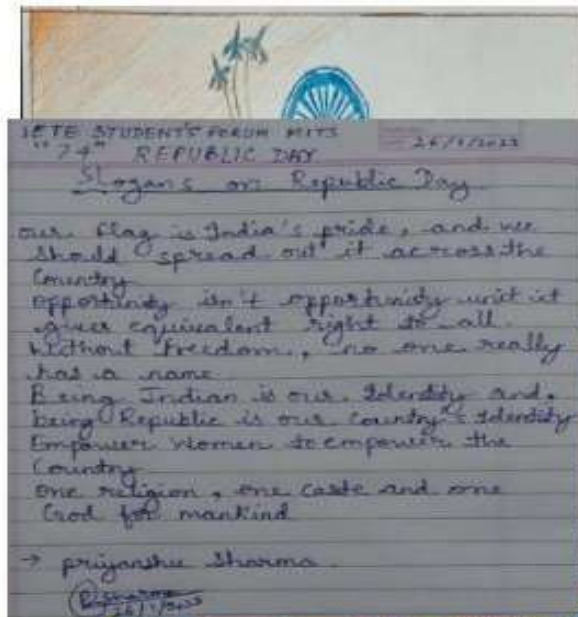 IETE STUDENT'S FORUM MITS
26/1/2023
"74" REPUBLIC DAY
Slogans on Republic Day
our flag is India's pride, and we
should spread out it across the
Country
opportunity isn't opportunity unit it
gives equivalent right to all.
Without freedom, no one really
has a name
Being Indian is our Identity and,
being Republic is our Country's Identity
Empower Women to empower the
Country
One religion, one caste and one
God for mankind
→ priyanshu Sharma.
P. Sharma
26/1/2023